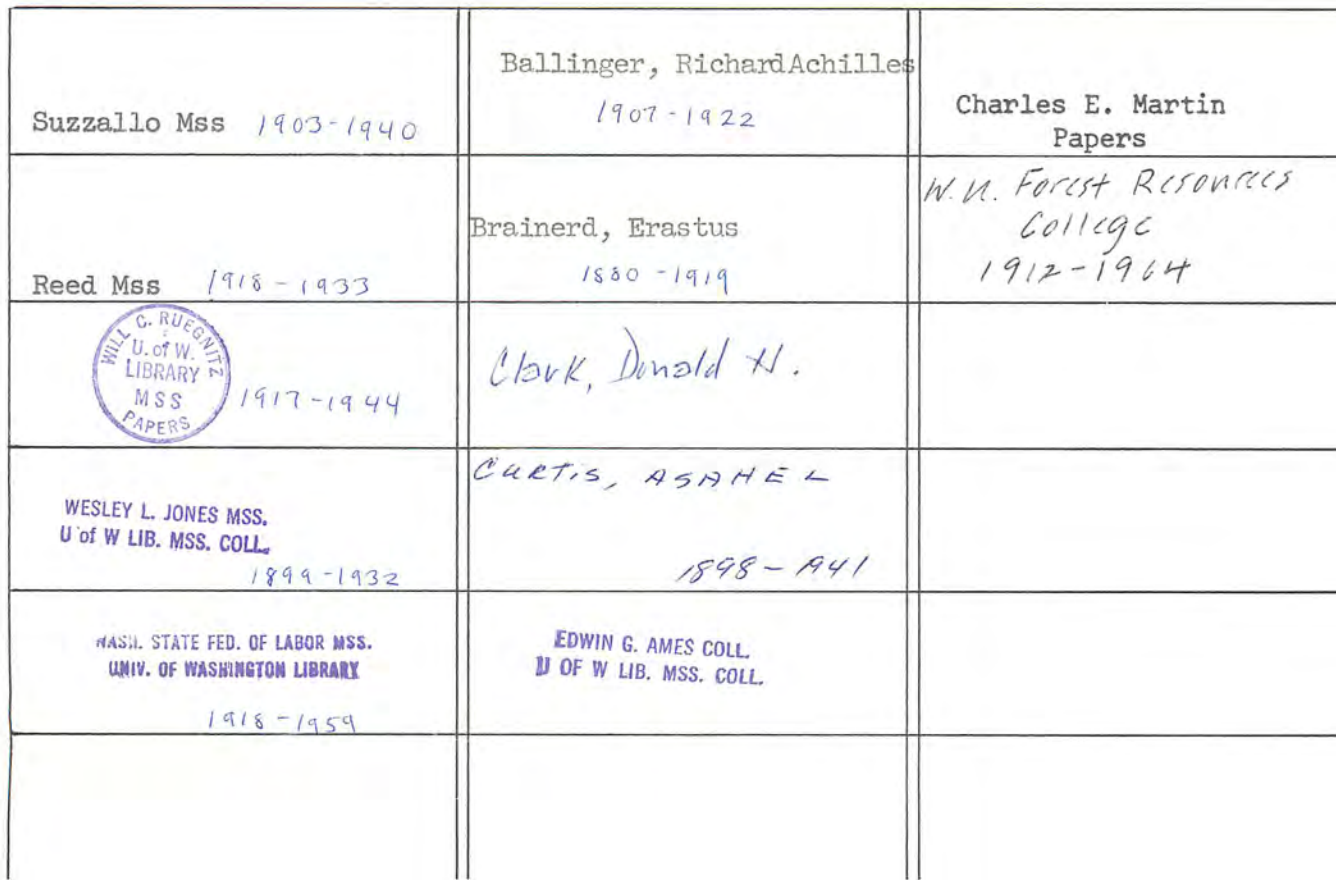 Suzzallo Mss 1903-1940
Ballinger, Richard Achilles
1907-1922
Charles E. Martin
Papers
Reed Mss 1918-1933
Brainerd, Erastus
1880-1919
W.U. Forest Resources
College
1912-1964
WILL C. RUEGNITZ
U. of W.
LIBRARY
MSS
PAPERS
1917-1944
Clark, Donald H.
WESLEY L. JONES MSS.
U of W LIB. MSS. COLL.
1899-1932
CURTIS, ASAHEL
1898-1941
WASH. STATE FED. OF LABOR MSS.
UNIV. OF WASHINGTON LIBRARY
1918-1959
EDWIN G. AMES COLL.
U OF W LIB. MSS. COLL.